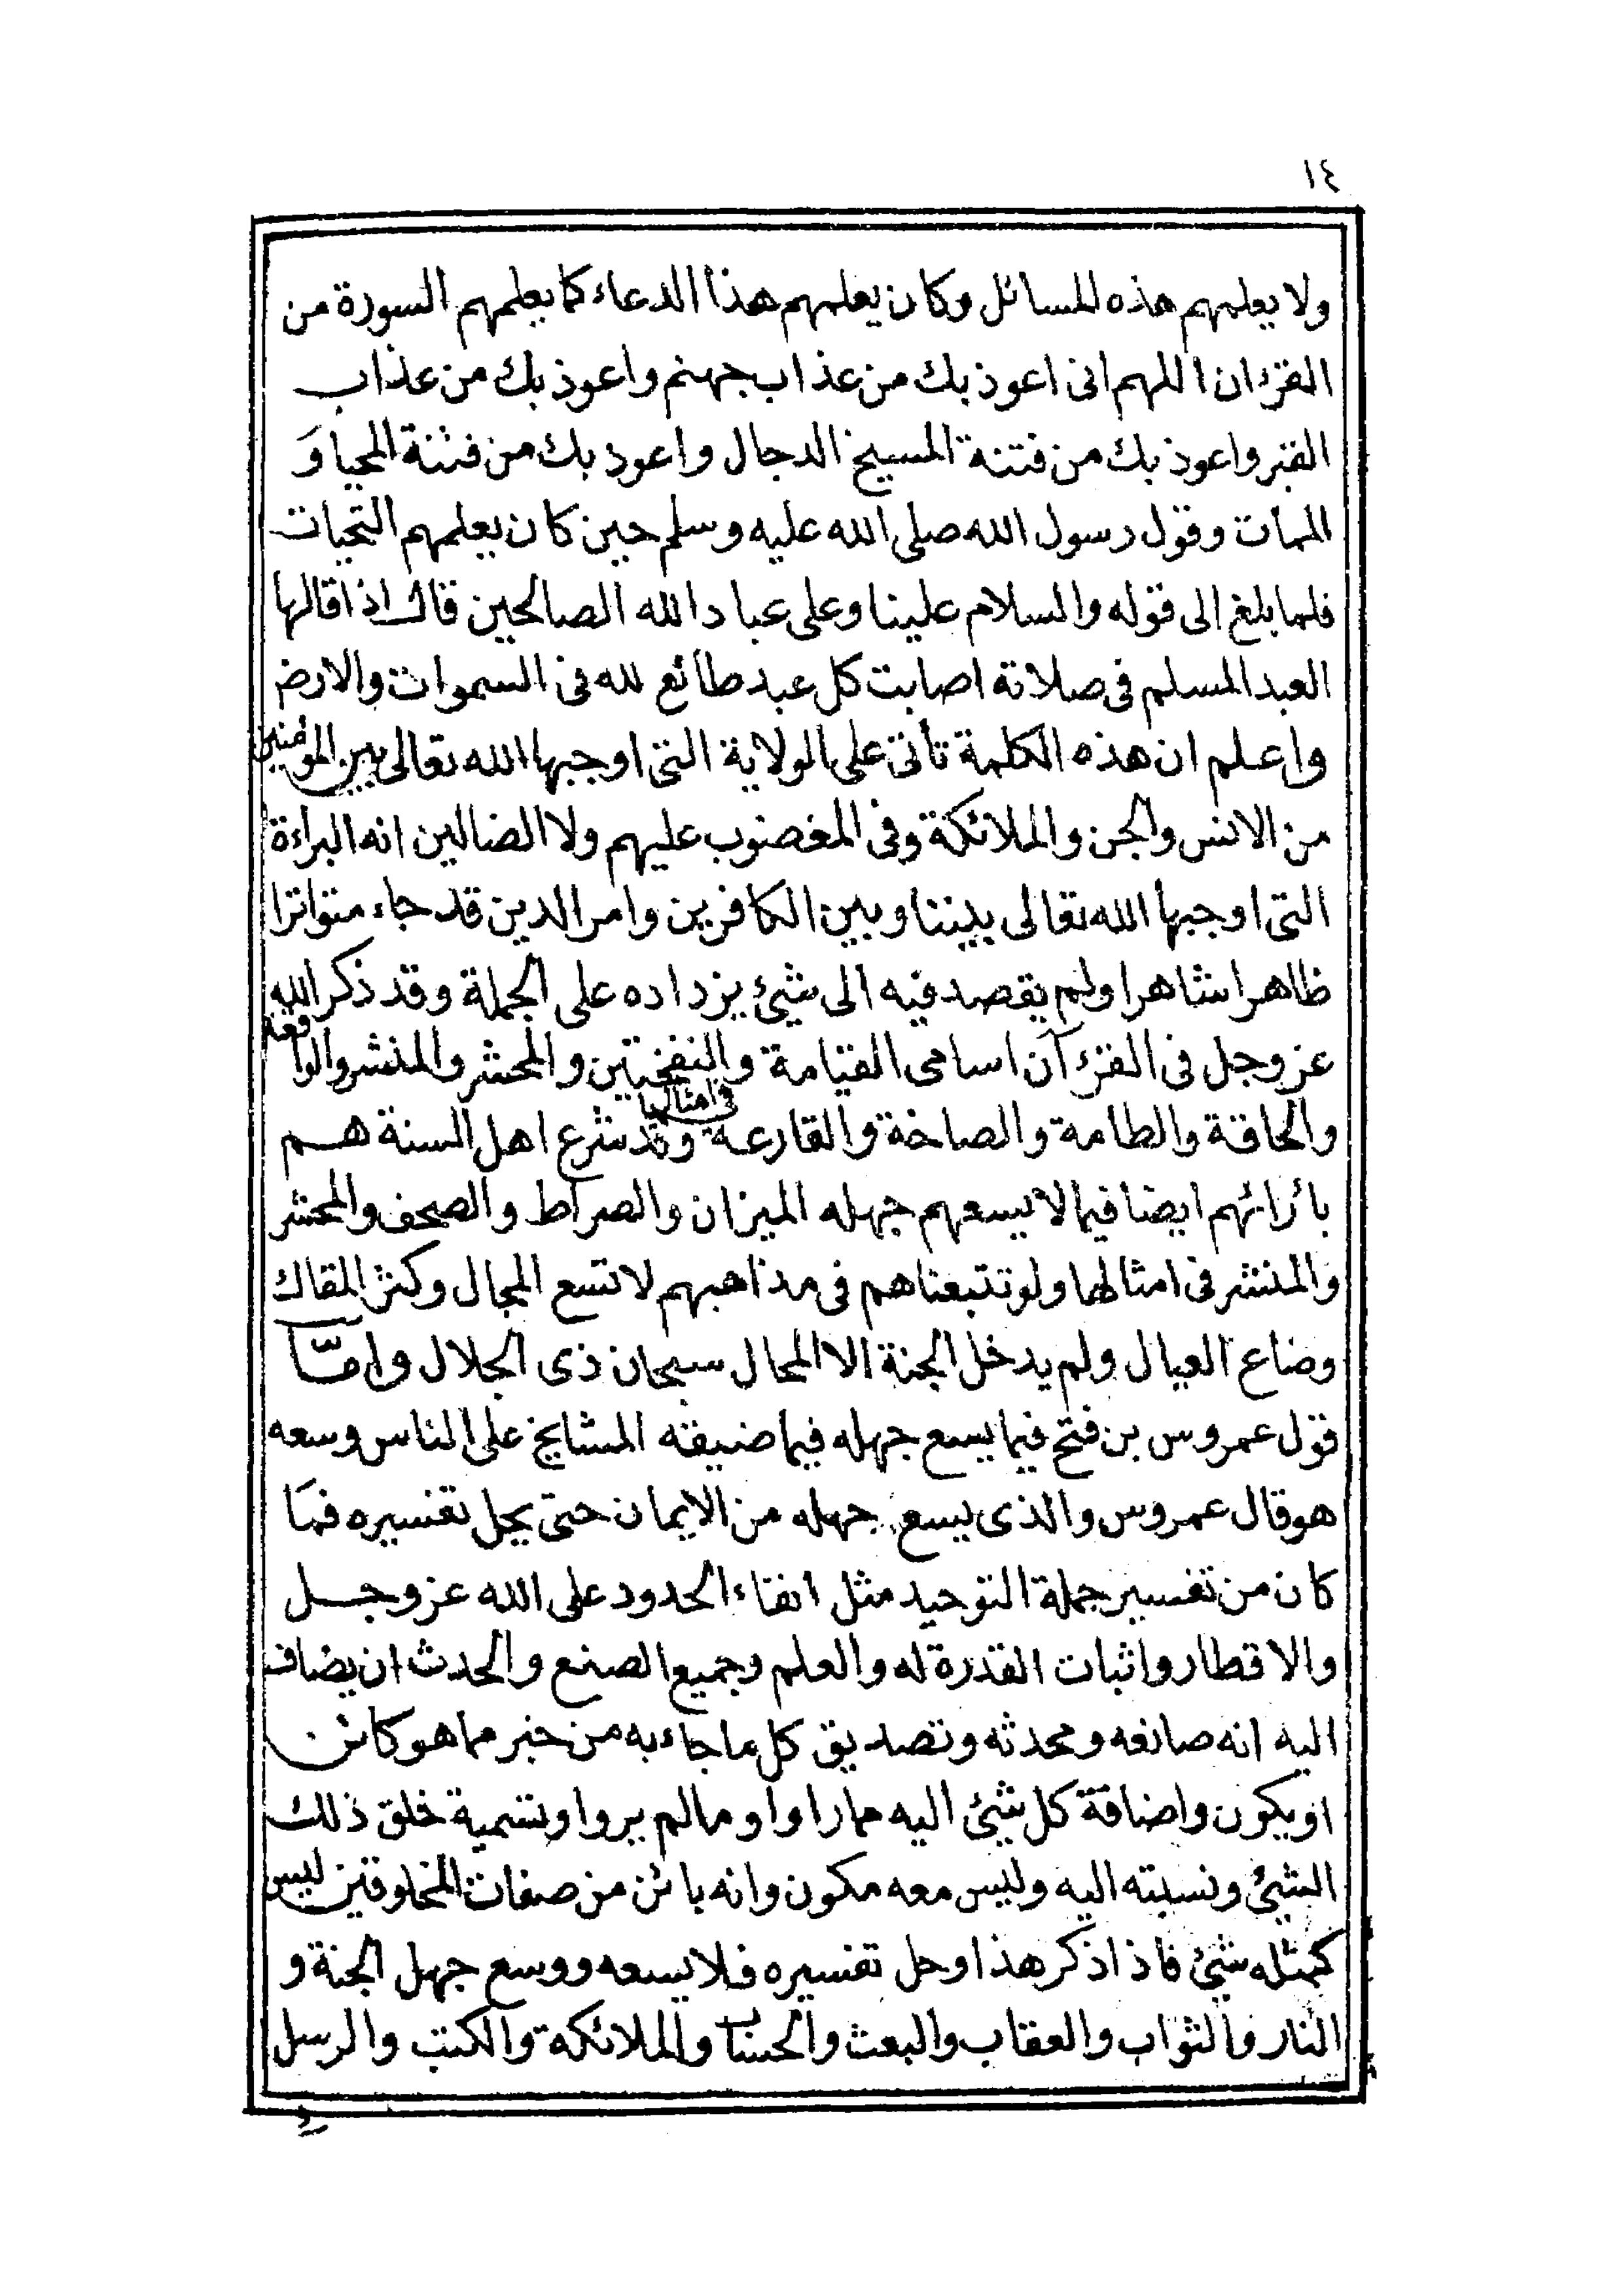 ١٤
ولا يعلمهم هذه المسائل وكان يعلمهم هذا الدعاء كما يعلمهم السورة من
القرءان اللهم انى اعوذ بك من عذاب جهنم واعوذ بك من عذاب
القبر واعوذ بك من فتنة المسيح الدجال واعوذ بك من فتنة المحيا وَ
الممات وقول رسول الله صلى الله عليه وسلم حين كان يعلمهم التحيات
فلما بلغ الى قوله والسلام علينا وعلى عباد الله الصالحين قال اذا قالها
العبد المسلم فى صلاته اصابت كل عبد طائع لله فى السموات والارض
واعلم ان هذه الكلمة تأتى على الولاية التى اوجبها الله تعالى بين المؤمنين
من الانس والجن والملائكة وفى المغضوب عليهم ولا الضالين انه البراءة
التى اوجبها الله تعالى بيننا وبين الكافرين وامر الدين قد جاء متواترا
ظاهرا شاهرا ولم يقصد فيه الى شيئ يزداده على الجملة وقد ذكر الله
عز وجل فى القرءآن اسامى القيامة والنفختين والمحشر والمنشر والواقعة
والحاقة والطامة والصاخة والقارعة فى امثالها وقد شرع اهل السنة هم
بأرائهم ايضا فيما لا يسعهم جهله الميزان والصراط والصحف والمحشر
والمنشر فى امثالها ولو تتبعناهم فى مذاهبهم لاتسع المجال وكثر المقال
وضاع العيال ولم يدخل الجنة الا المحال سبحان ذى الجلال وامّا
قول عمروس بن فتح فيما يسع جهله فيما ضيقه المشايخ على الناس وسعه
هو قال عمروس والذى يسع جهله من الايمان حتى يحل تفسيره فمَا
كان من تفسير جملة التوحيد مثل انفاء الحدود على الله عز وجل
والاقطار واثبات القدرة له والعلم وجميع الصنع والحدث ان يضاف
اليه انه صانعه ومحدثه وتصديق كل ما جاء به من خبر مما هو كائن
او يكون واضافة كل شيئ اليه مما راوا او مما لم يروا وتسمية خلق ذلك
الشيئ ونسبته اليه وليس معه مكون وانه بائن من صفات المخلوقين ليس
كمثله شيئ فاذا ذكر هذا وحل تفسيره فلا يسعه ووسع جهل الجنة و
النار والثواب والعقاب والبعث والحساب والملائكة والكتب والرسل